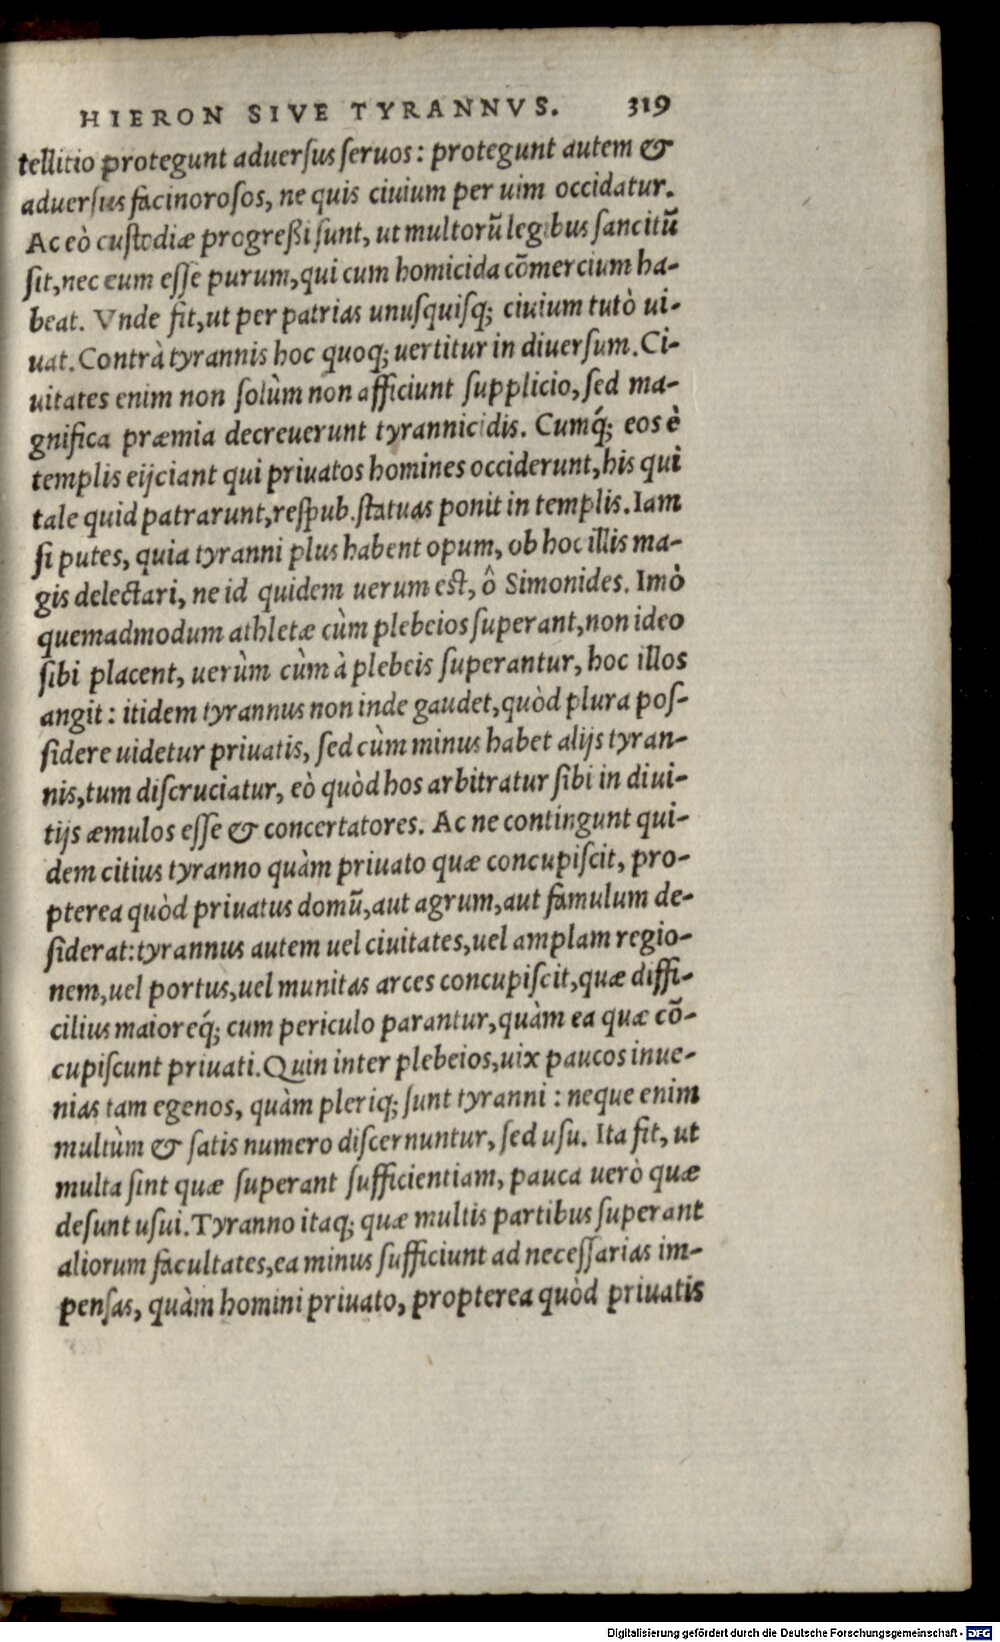 HIERON SIVE TYRANNVS. 319
tellitio protegunt aduersus seruos: protegunt autem &
aduersus facinorosos, ne quis ciuium per uim occidatur.
Ac eò custodiæ progreßi sunt, ut multorũ legibus sancitũ
sit, nec eum esse purum, qui cum homicida cõmercium ha-
beat. Vnde fit, ut per patrias unusquisq; ciuium tutò ui-
uat. Contrà tyrannis hoc quoq; uertitur in diuersum. Ci-
uitates enim non solùm non afficiunt supplicio, sed ma-
gnifica præmia decreuerunt tyrannicidis. Cumq́; eos è
templis eijciant qui priuatos homines occiderunt, his qui
tale quid patrarunt, respub. statuas ponit in templis. Iam
si putes, quia tyranni plus habent opum, ob hoc illis ma-
gis delectari, ne id quidem uerum est, ô Simonides. Imò
quemadmodum athletæ cùm plebeios superant, non ideo
sibi placent, uerùm cùm à plebeis superantur, hoc illos
angit: itidem tyrannus non inde gaudet, quòd plura pos-
sidere uidetur priuatis, sed cùm minus habet alijs tyran-
nis, tum discruciatur, eò quòd hos arbitratur sibi in diui-
tijs æmulos esse & concertatores. Ac ne contingunt qui-
dem citius tyranno quàm priuato quæ concupiscit, pro-
pterea quòd priuatus domũ, aut agrum, aut famulum de-
siderat: tyrannus autem uel ciuitates, uel amplam regio-
nem, uel portus, uel munitas arces concupiscit, quæ diffi-
cilius maioreq́; cum periculo parantur, quàm ea quæ cõ-
cupiscunt priuati. Quin inter plebeios, uix paucos inue-
nias tam egenos, quàm pleriq; sunt tyranni: neque enim
multùm & satis numero discernuntur, sed usu. Ita fit, ut
multa sint quæ superant sufficientiam, pauca uerò quæ
desunt usui. Tyranno itaq; quæ multis partibus superant
aliorum facultates, ea minus sufficiunt ad necessarias im-
pensas, quàm homini priuato, propterea quòd priuatis
Digitalisierung gefördert durch die Deutsche Forschungsgemeinschaft - DFG